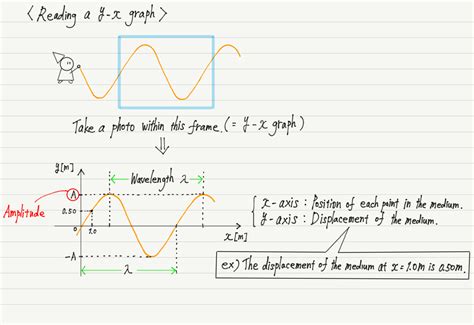 < Reading a y-x graph >
Take a photo within this frame. (= y-x graph)
y[m]
Wavelength λ
A
Amplitude
0.50
0
1.0
x[m]
-A
λ
x-axis : Position of each point in the medium.
y-axis : Displacement of the medium.
ex) The displacement of the medium at x=1.0m is 0.50m.